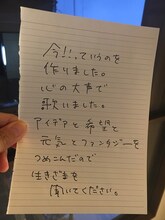 今!!、っていうのを
作りました。
心の大声で
歌いました。
アイデアと希望と
元気とファンタジーを
つめこんだので
生きざまを
聞いてください。